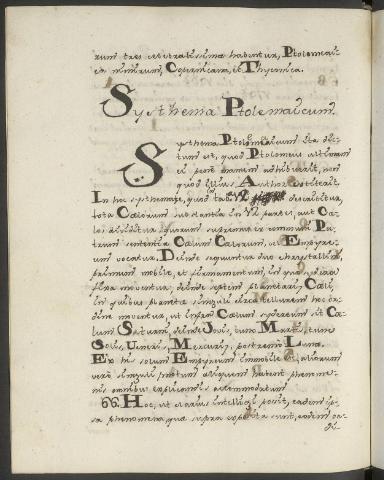 rum tres celebratissima habentur, Ptolemai-
cum nimirum, Copernicana, et Thyconica.
Systhema Ptolemaicum.
Systhema Ptolemaicum ita dic-
tum est, quod Ptolomeus illud
non
quod illius Author extiterit.
In hoc systhemate, quod tab. VI describitur,
tota Cælorum substantia in 12 partes, aut Cæ-
los dividitur quorum supremus ex communi Pa-
trum sententia Cælum Cælorum, vel Empyre-
um vocatur. Deinde sequuntur duo chrystallini,
primum mobile, et firmamentum, in quo sydera
fixa moventur; deinde septem planetarii Cæli,
in quibus planetæ singuli circa tellurem hoc or-
dine moventur, ut infra Cælum sydereum sit Cæ-
lum Saturni, deinde Jovis, tunc Martis, tum
Solis, Veneris, Mercurii, postremo Lunæ.
Ex his solum Empyreum immobile est, aliorum
vero singuli motum aliquem habent phenome-
nis omnibus explicandis accommodatum.
66. Hoc, ut clarius intelligi possit, eadem ip-
sa phenomena, quæ supra exposita sunt, eodem or-
di-